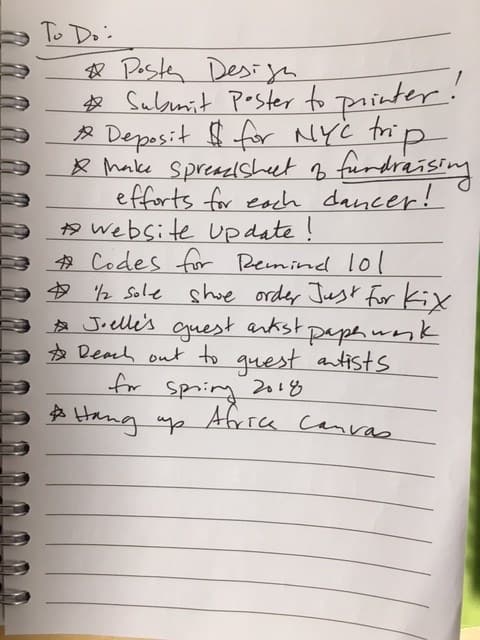 To Do:
☆ Poster Design
☆ Submit Poster to printer!
☆ Deposit $ for NYC trip
☆ Make spreadsheet of fundraising
efforts for each dancer!
☆ Website Update!
☆ Codes for Remind 101
☆ ½ sole shoe order Just For Kix
☆ Joelle's guest artist paperwork
☆ Reach out to guest artists
for spring 2018
☆ Hang up Africa Canvas